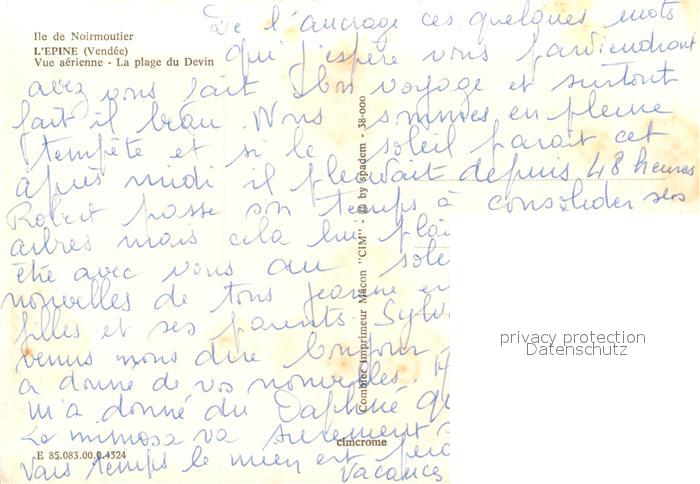 Ile de Noirmoutier
L'EPINE (Vendée)
Vue aérienne - La plage du Devin
De l'ancrage ces quelques mots
qui j'espère vous parviendront
avez vous fait bon voyage et surtout
fait il beau. Nous sommes en pleine
tempête et si le soleil parait cet
après midi il pleuvait depuis 48 heures
Robert passe son temps à consolider ses
arbres mais cela lui plaî
être avec vous au sole
nouvelles de tous Jeanne en
filles et ses parents. Sylv
venus nous dire bonjour
a donné de vos nouvelles.
m'a donné du Daphné
Le mimosa va surement
vais temps le mien est
vacances
Combier imprimeur Mâcon "CIM" - © by spadem - 38-000
cimcrome
E 85.083.00.0.4324
privacy protection
Datenschutz